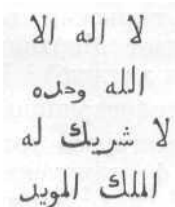 لا اله الا
الله وحده
لا شريك له
الملك المويد